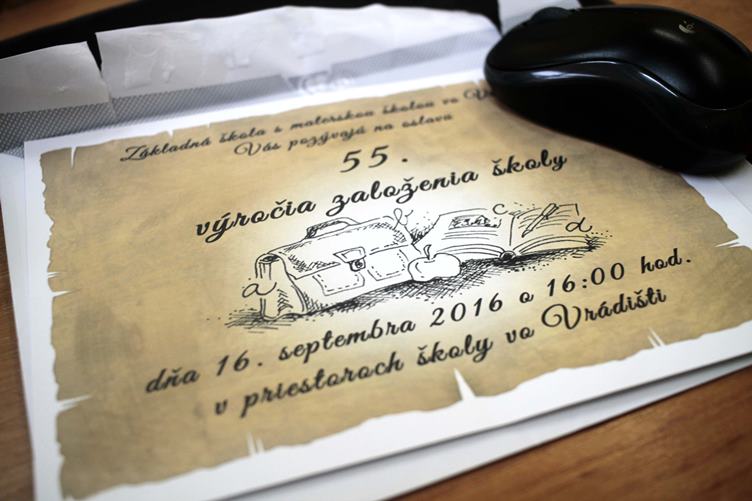 Základná škola s materskou školou vo
Vás pozývajú na oslavu
55.
výročia založenia školy
a
c
d
dňa 16. septembra 2016 o 16:00 hod.
v priestoroch školy vo Vrádišti